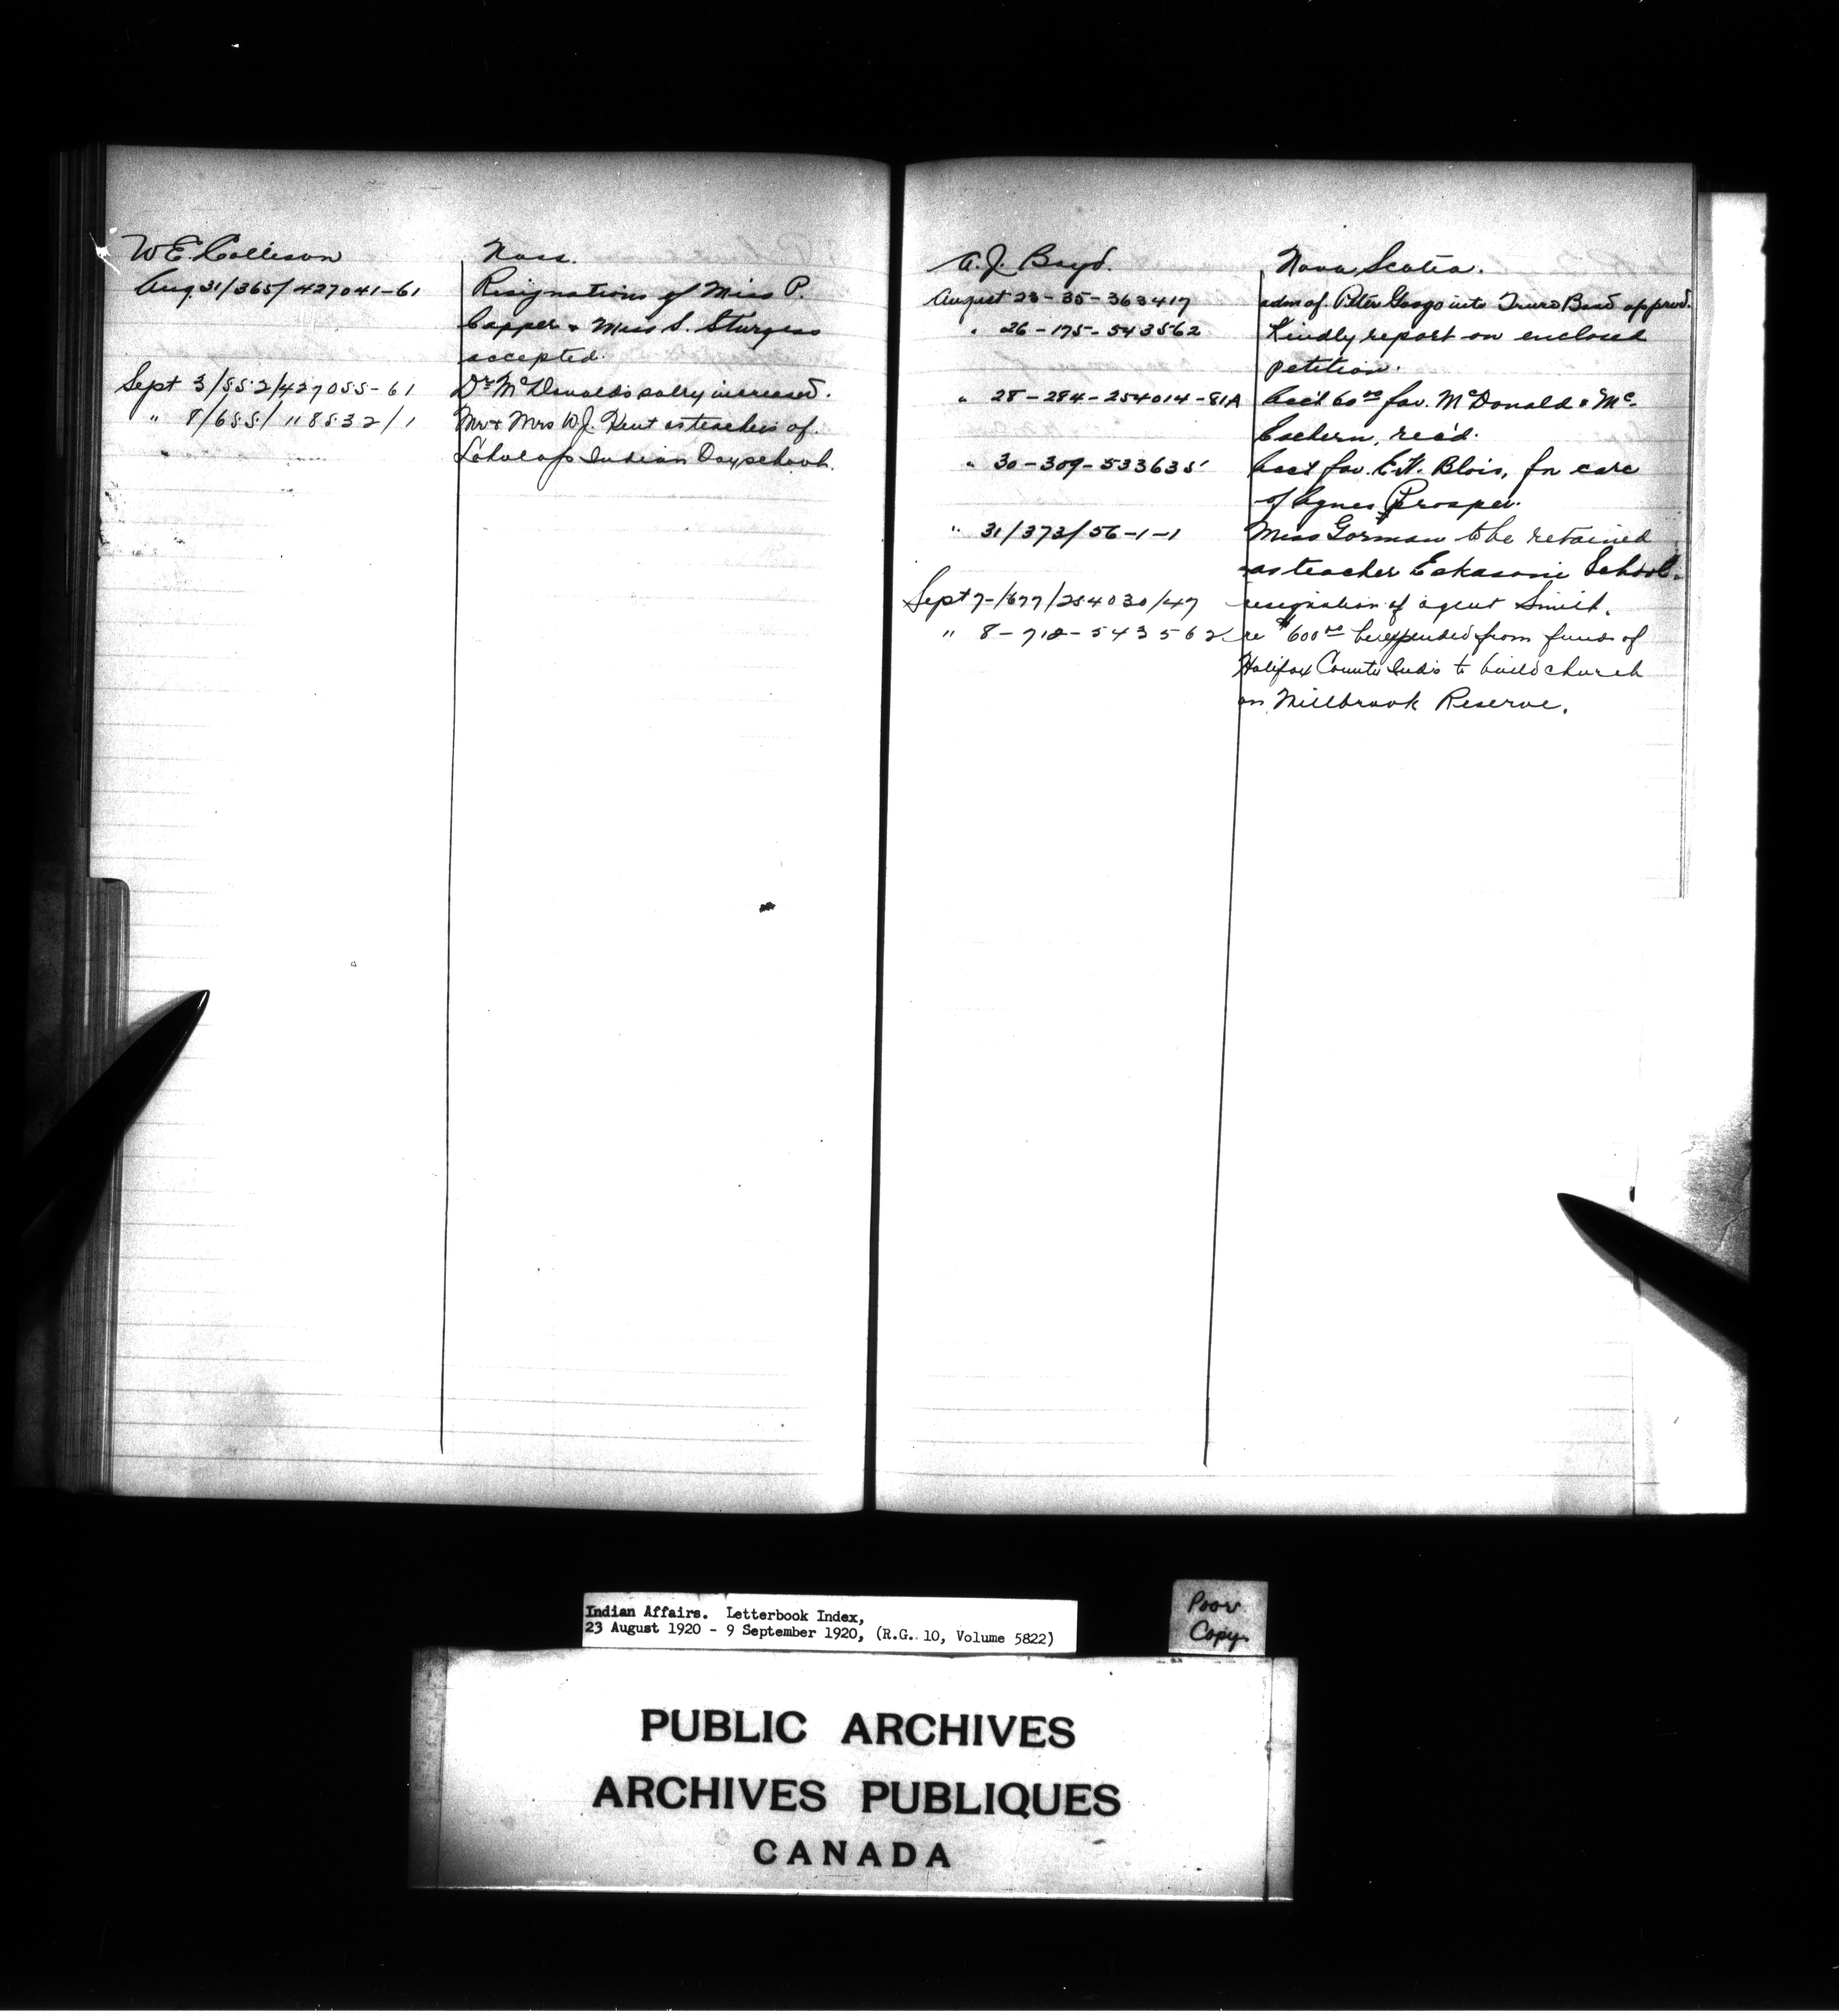 W E Collison Nass.
Aug. 31/365/427041-61 Resignations of Miss P.
Capper & Miss S. Sturgess
accepted.
Sept 3/552/427055-61 Dr McDonald's salry increased.
" 8/655/118532/1 Mr & Mrs W.J. Kent as teachers of
Indian Day school.
A. J. Boyd. Nova Scotia.
August 23-35-363417 adm of Peter Googo into Truro Bas'd approved.
" 26-175-543562 Kindly report on enclosed
petition.
" 28-284-254014-81A Acc't 60 00 fav. McDonald & Mc-
Eachern, rec'd.
" 30-309-533635 Acct fav. E.H. Blois, for care
of Agnes Prosper.
" 31/373/56-1-1 Miss Gorman to be retained
as teacher Eskasoni School.
Sept 7-/677/254030/47 resignation of agent Smith.
" 8-712-543562 re $600 00 be expended from funds of
Halifax County Inds to build church
on Millbrook Reserve.
Indian Affairs. Letterbook Index,
23 August 1920 - 9 September 1920, (R.G. 10, Volume 5822)
Poor
Copy
PUBLIC ARCHIVES
ARCHIVES PUBLIQUES
CANADA